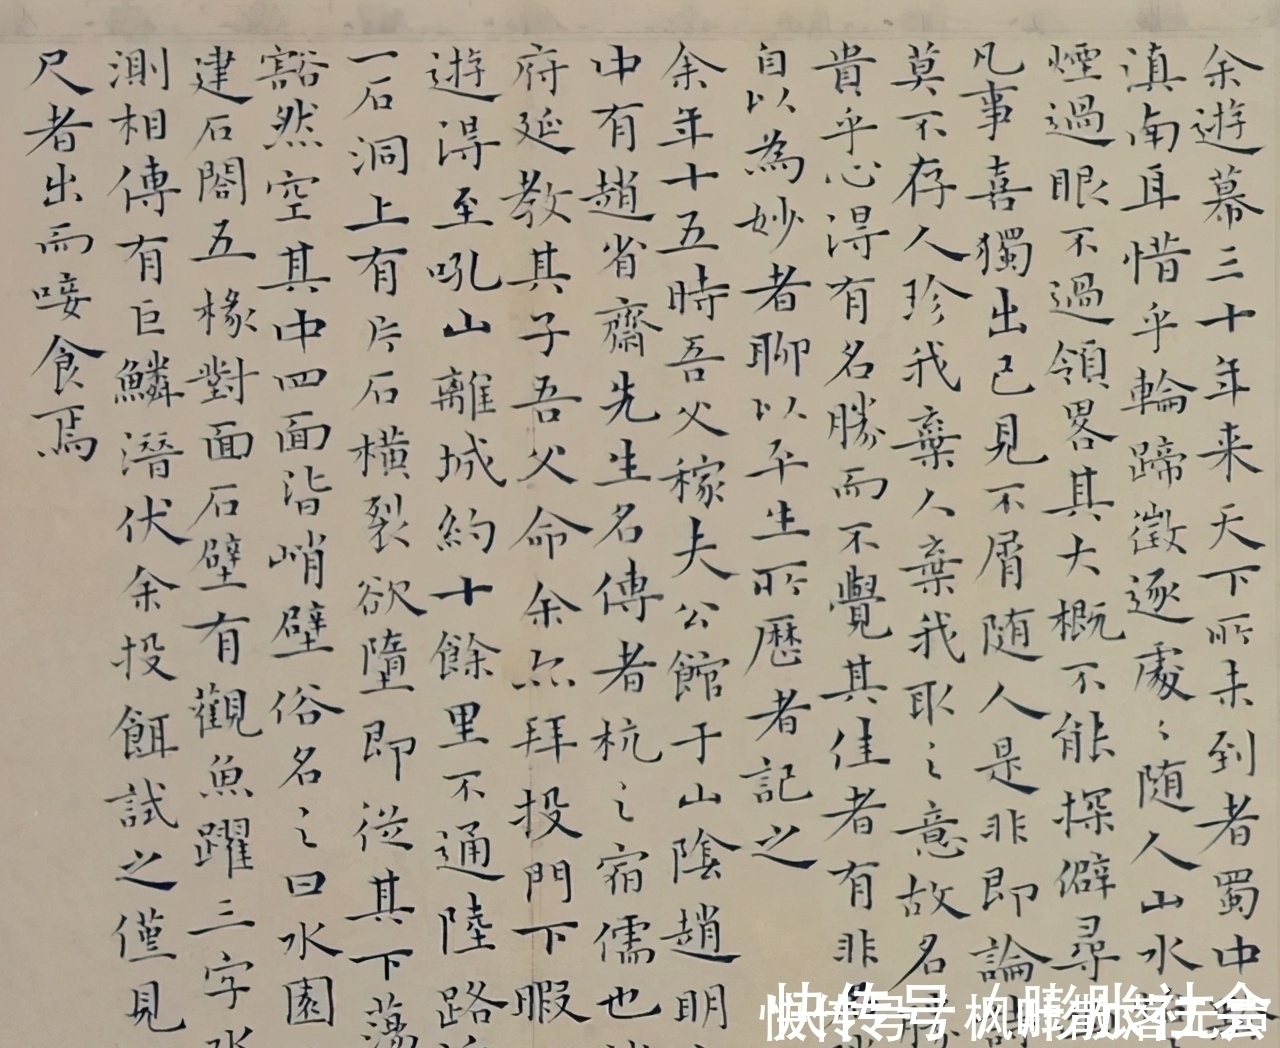 余遊幕三十年来天下所未到者蜀中
滇南耳惜乎輪蹄徵逐處〻随人山水
煙過眼不過領畧其大概不能探僻尋
凡事喜獨出己見不屑随人是非即論
莫不存人珍我棄人棄我取之意故名
貴乎心得有名勝而不覺其佳者有非
自以為妙者聊以平生所歷者記之
余年十五時吾父稼夫公館于山陰趙明
中有趙省齋先生名傳者杭之宿儒也
府延教其子吾父命余亦拜投門下暇
遊得至吼山離城約十餘里不通陸路
一石洞上有片石橫裂欲墮即從其下蕩
豁然空其中四面皆峭壁俗名之曰水園
建石閣五椽對面石壁有觀魚躍三字水
測相傳有巨鱗潛伏余投餌試之僅見
尺者出而唼食焉
快传号